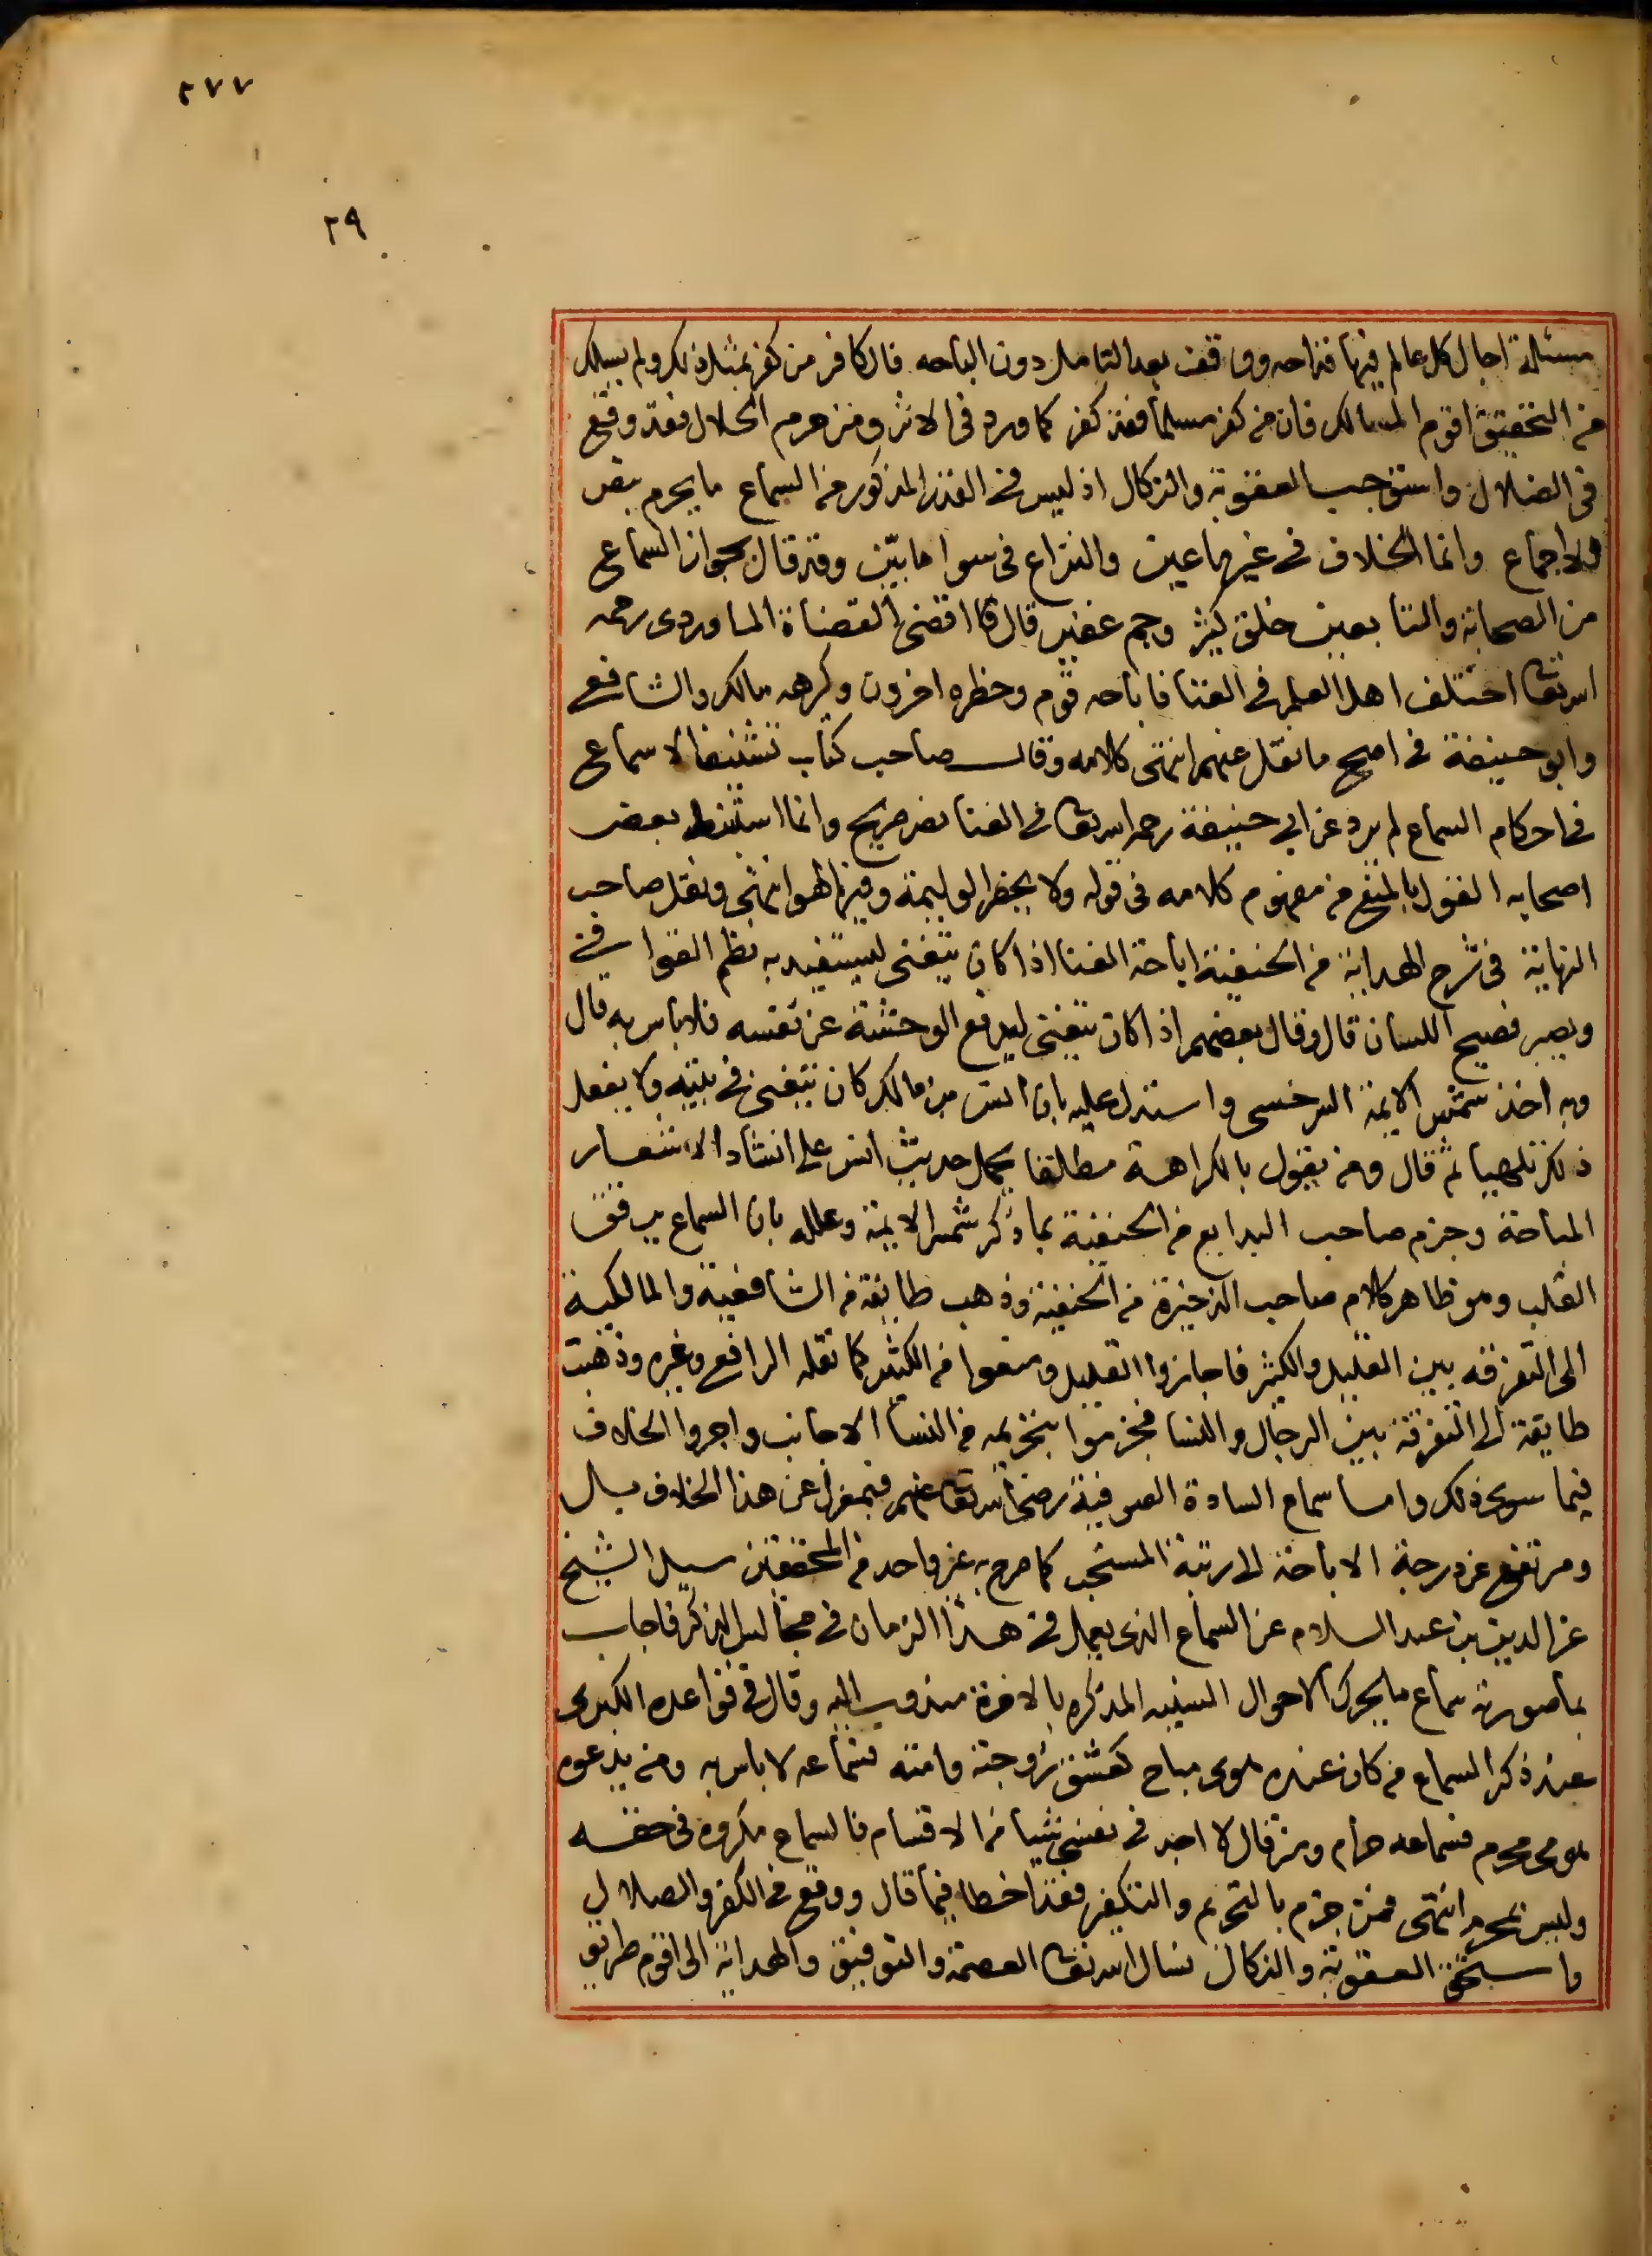 ٢٧٧
٢٩
مسئلة اجال كل عالم فيها قداحه ووقف بعد التامل دون الباحه فالكافر من كفر بمثل ذلك ولم يسلك
من التحقيق اقوم المسالك فان من كفر مسلما فقد كفر كما ورد في الاثر ومن حرم الحلال فقد وقع
في الضلال واستوجب العقوبة والنكال اذ ليس في القدر المذكور من السماع ما يحرم بنص
ولا اجماع وانما الخلاف في غير ما عين والنزاع في سوا ما بيّن وقد قال بجواز السماع
من الصحابة والتابعين خلق كثير وجم غفير قال اقضى القضاة الماوردى رحمه
الله تعالى اختلف اهل العلم في الغنا فاباحه قوم وحظره اخرون وكرهه مالك والشافعي
وابو حنيفة في اصح ما نقل عنهم انتهى كلامه وقال صاحب كتاب تشنيف الاسماع
في احكام السماع لم يرد عن ابي حنيفة رحمه الله تعالى في الغنا نص صريح وانما استنبط بعض
اصحابه القول بالمنع من مفهوم كلامه في قوله ولا يحضر الوليمة وفيها لهو انتهى ونقل صاحب
النهاية في شرح الهداية من الحنفية اباحة الغنا اذا كان يتغنى ليستفيد به نظم القوافي
ويصير فصيح اللسان قال وقال بعضهم اذا كان يتغنى ليدفع الوحشة عن نفسه فلا باس به قال
وبه اخذ شمس الايمة السرخسى واستدل عليه بان انس بن مالك كان يتغنى في بيته ولا يفعل
ذلك تلهيا ثم قال ومن يقول بالكراهة مطلقا يحمل حديث انس على انشاد الاشعار
المباحة وجزم صاحب البدايع من الحنفية بما ذكر شمس الايمة وعلله بان السماع يرقق
القلب وهو ظاهر كلام صاحب الذخيرة من الحنفية وذهب طايفة من الشافعية والمالكية
الى التفرقه بين القليل والكثير فاجازوا القليل ومنعوا من الكثير كما نقله الرافعي وغيره وذهبت
طايفة الى التفرقة بين الرجال والنسا فجزموا بتحريمه من النسا الاجانب واجروا الخلاف
فيما سوى ذلك واما سماع السادة الصوفية رضي الله تعالى عنهم فبمعزل عن هذا الخلاف بل
ومرتفع عن درجة الاباحة الى رتبة المستحب كما صرح به غير واحد من المحققين سيل الشيخ
عز الدين بن عبد السلام عن السماع الذي يعمل في هذا الزمان في مجالس الذكر فاجاب
بما صورته سماع ما يحرك الاحوال السنيه المذكره بالاخرة مندوب اليه وقال في قواعده الكبرى
عند ذكر السماع من كان عنده هوى مباح كعشق زوجته وامته فسماعه لا باس به ومن يدعوه
هوى محرم فسماعه حرام ومن قال لا اجد في نفسي شيا من الاقسام فالسماع مكروه في حقه
وليس بمحرم انتهى فمن جزم بالتحريم والتكفير فقد اخطا فيما قال ووقع في الكفر والضلال
واستحق العقوبة والنكال نسال الله تعالى العصمة والتوفيق والهداية الى اقوم طريق